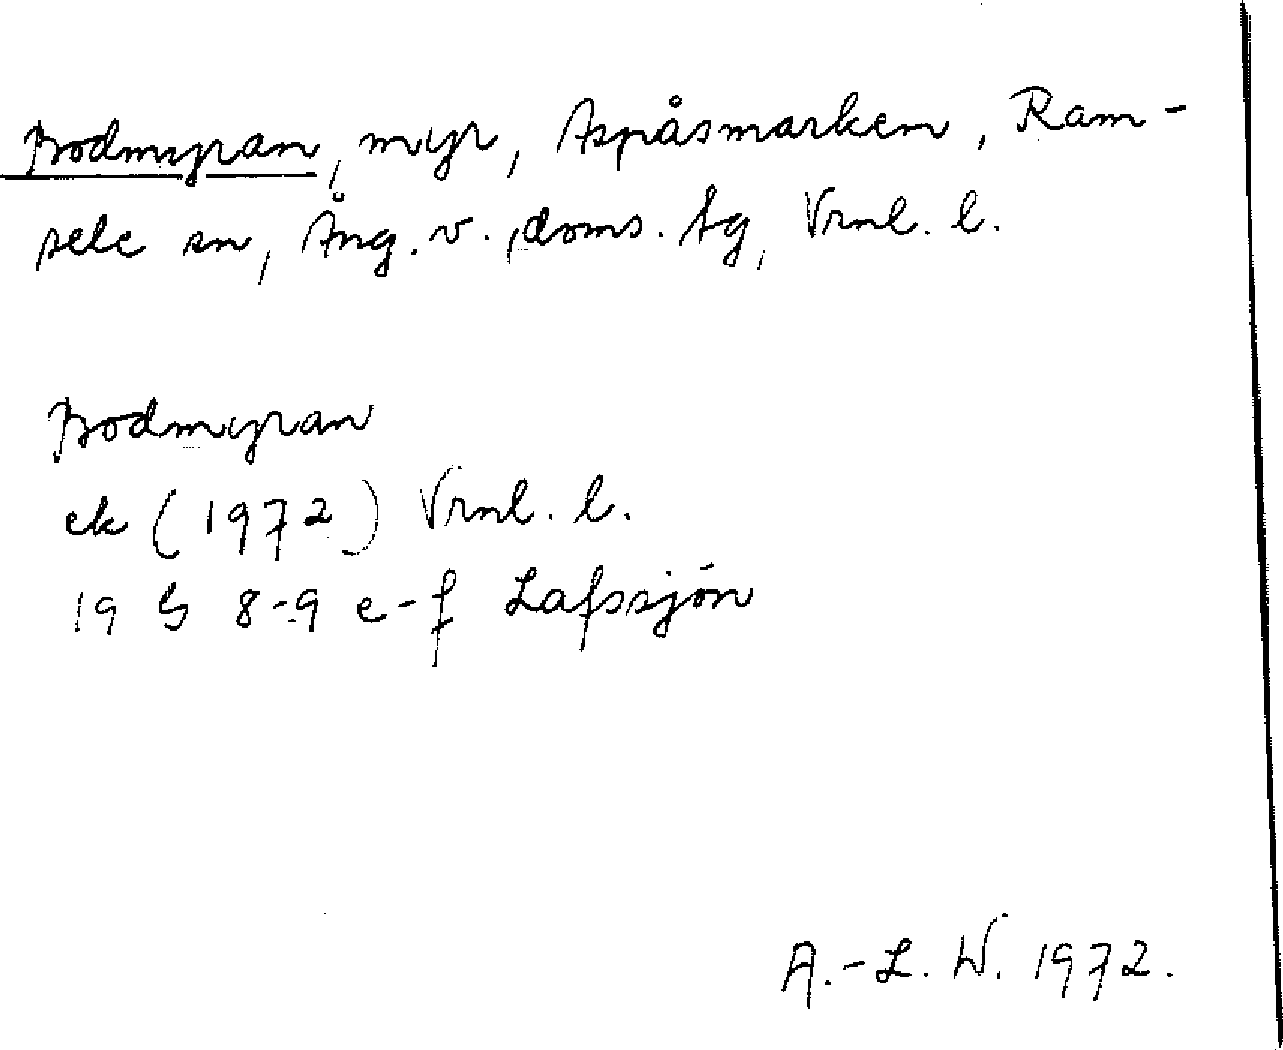 Bodmyran, myr, Aspåsmarken, Ram-
sele sn, Ång. v. , doms. tg, Vrml. l.
Bodmyran
ek (1972) Vrml. l.
19 G 8-9 e-f Lafssjön
A.-L. W. 1972.